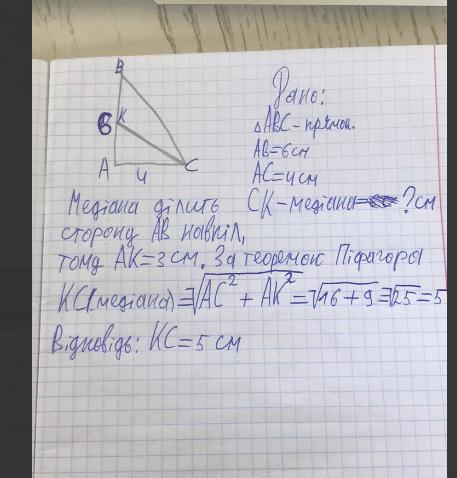 B
6 K
A 4 C
Дано:
△ABC - прямок.
AB=6см
AC=4см
CK-медіана= ? см
Медіана ділить
сторону AB навпіл,
тому AK=3 см. За теоремою Піфагора
KC(медіана)=√AC² + AK² =√16+9=√25=5
Відповідь: KC=5 см